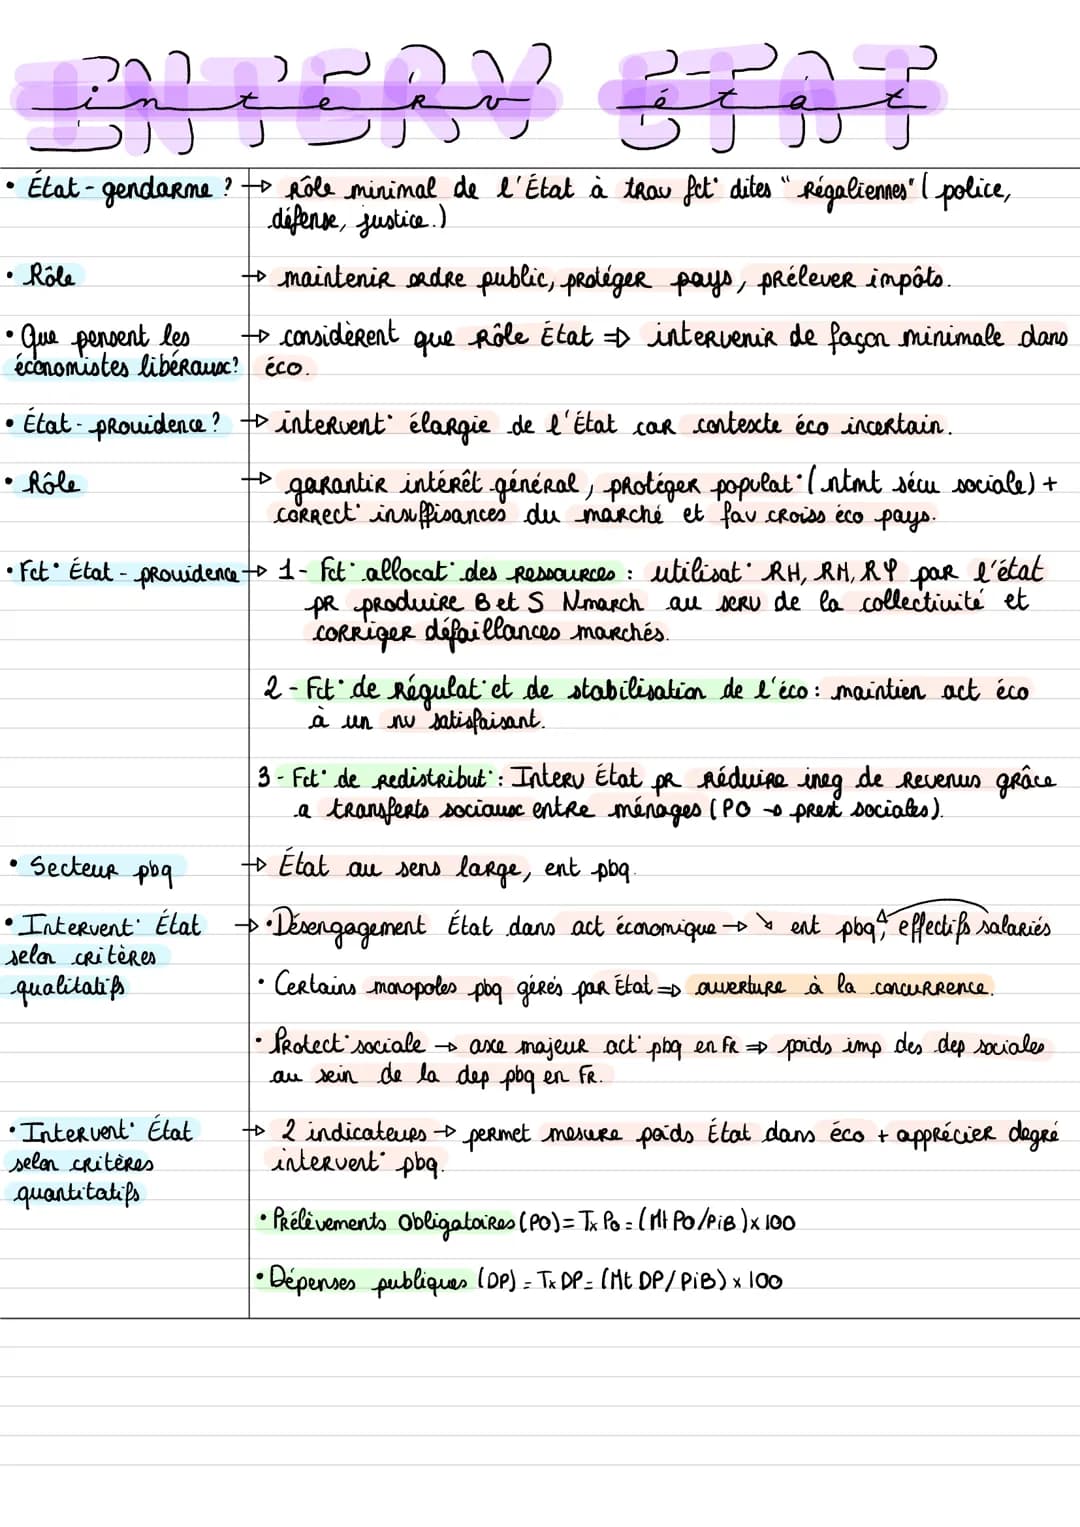 INTERV ÉTAT
interv état
• État-gendarme ? → Rôle minimal de l'État à trav fct° dites "Régaliennes" (police,
défense, justice.)
• Rôle → maintenir ordre public, protéger pays, prélever impôts.
• Que pensent les → considèrent que Rôle État ⇒ intervenir de façon minimale dans
économistes libéraux? éco.
• État-providence ? → intervent° élargie de l'État car contexte éco incertain.
• Rôle → garantir intérêt général, protéger populat° (ntmt sécu sociale) +
correct° insuffisances du marché et fav croiss éco pays.
• Fct° État-providence → 1- Fct° allocat° des ressources : utilisat° RH, RM, RP par l'état
pr produire B et S Nmarch au serv de la collectivité et
corriger défaillances marchés.
2- Fct° de Régulat° et de stabilisation de l'éco : maintien act éco
à un nv satisfaisant.
3- Fct° de redistribut° : Interv État pr réduire ineg de revenus grâce
a transferts sociaux entre ménages (PO → prest sociales).
• Secteur pbq → État au sens large, ent pbq.
• Intervent° État → • Désengagement État dans act économique → ↘ ent pbq, effectifs salariés
selon critères
qualitatifs • Certains monopoles pbq gérés par État ⇒ ouverture à la concurrence.
• Protect° sociale → axe majeur act° pbq en FR ⇒ poids imp des dep sociales
au sein de la dep pbq en FR.
• Intervent° État → 2 indicateurs → permet mesure poids État dans éco + apprécier degré
selon critères intervent° pbq.
quantitatifs
• Prélèvements Obligatoires (PO) = Tx Po = (Mt PO/PiB) x 100
• Dépenses publiques (DP) = Tx DP = (Mt DP/PiB) x 100